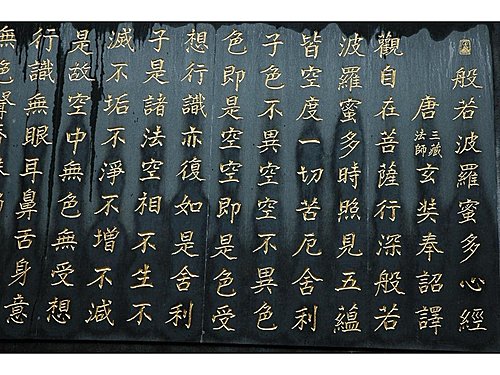 般若波羅蜜多心經
唐三藏法師玄奘奉詔譯
觀自在菩薩行深般若
波羅蜜多時照見五蘊
皆空度一切苦厄舍利
子色不異空空不異色
色即是空空即是色受
想行識亦復如是舍利
子是諸法空相不生不
滅不垢不淨不增不減
是故空中無色無受想
行識無眼耳鼻舌身意
無色聲香味